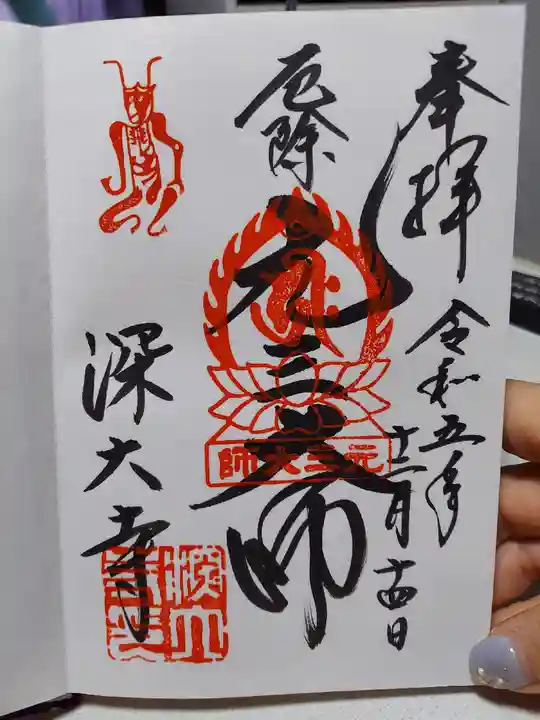 奉拝
令和五年
十二月十四日
厄除
元三大師
元三大師
深大寺